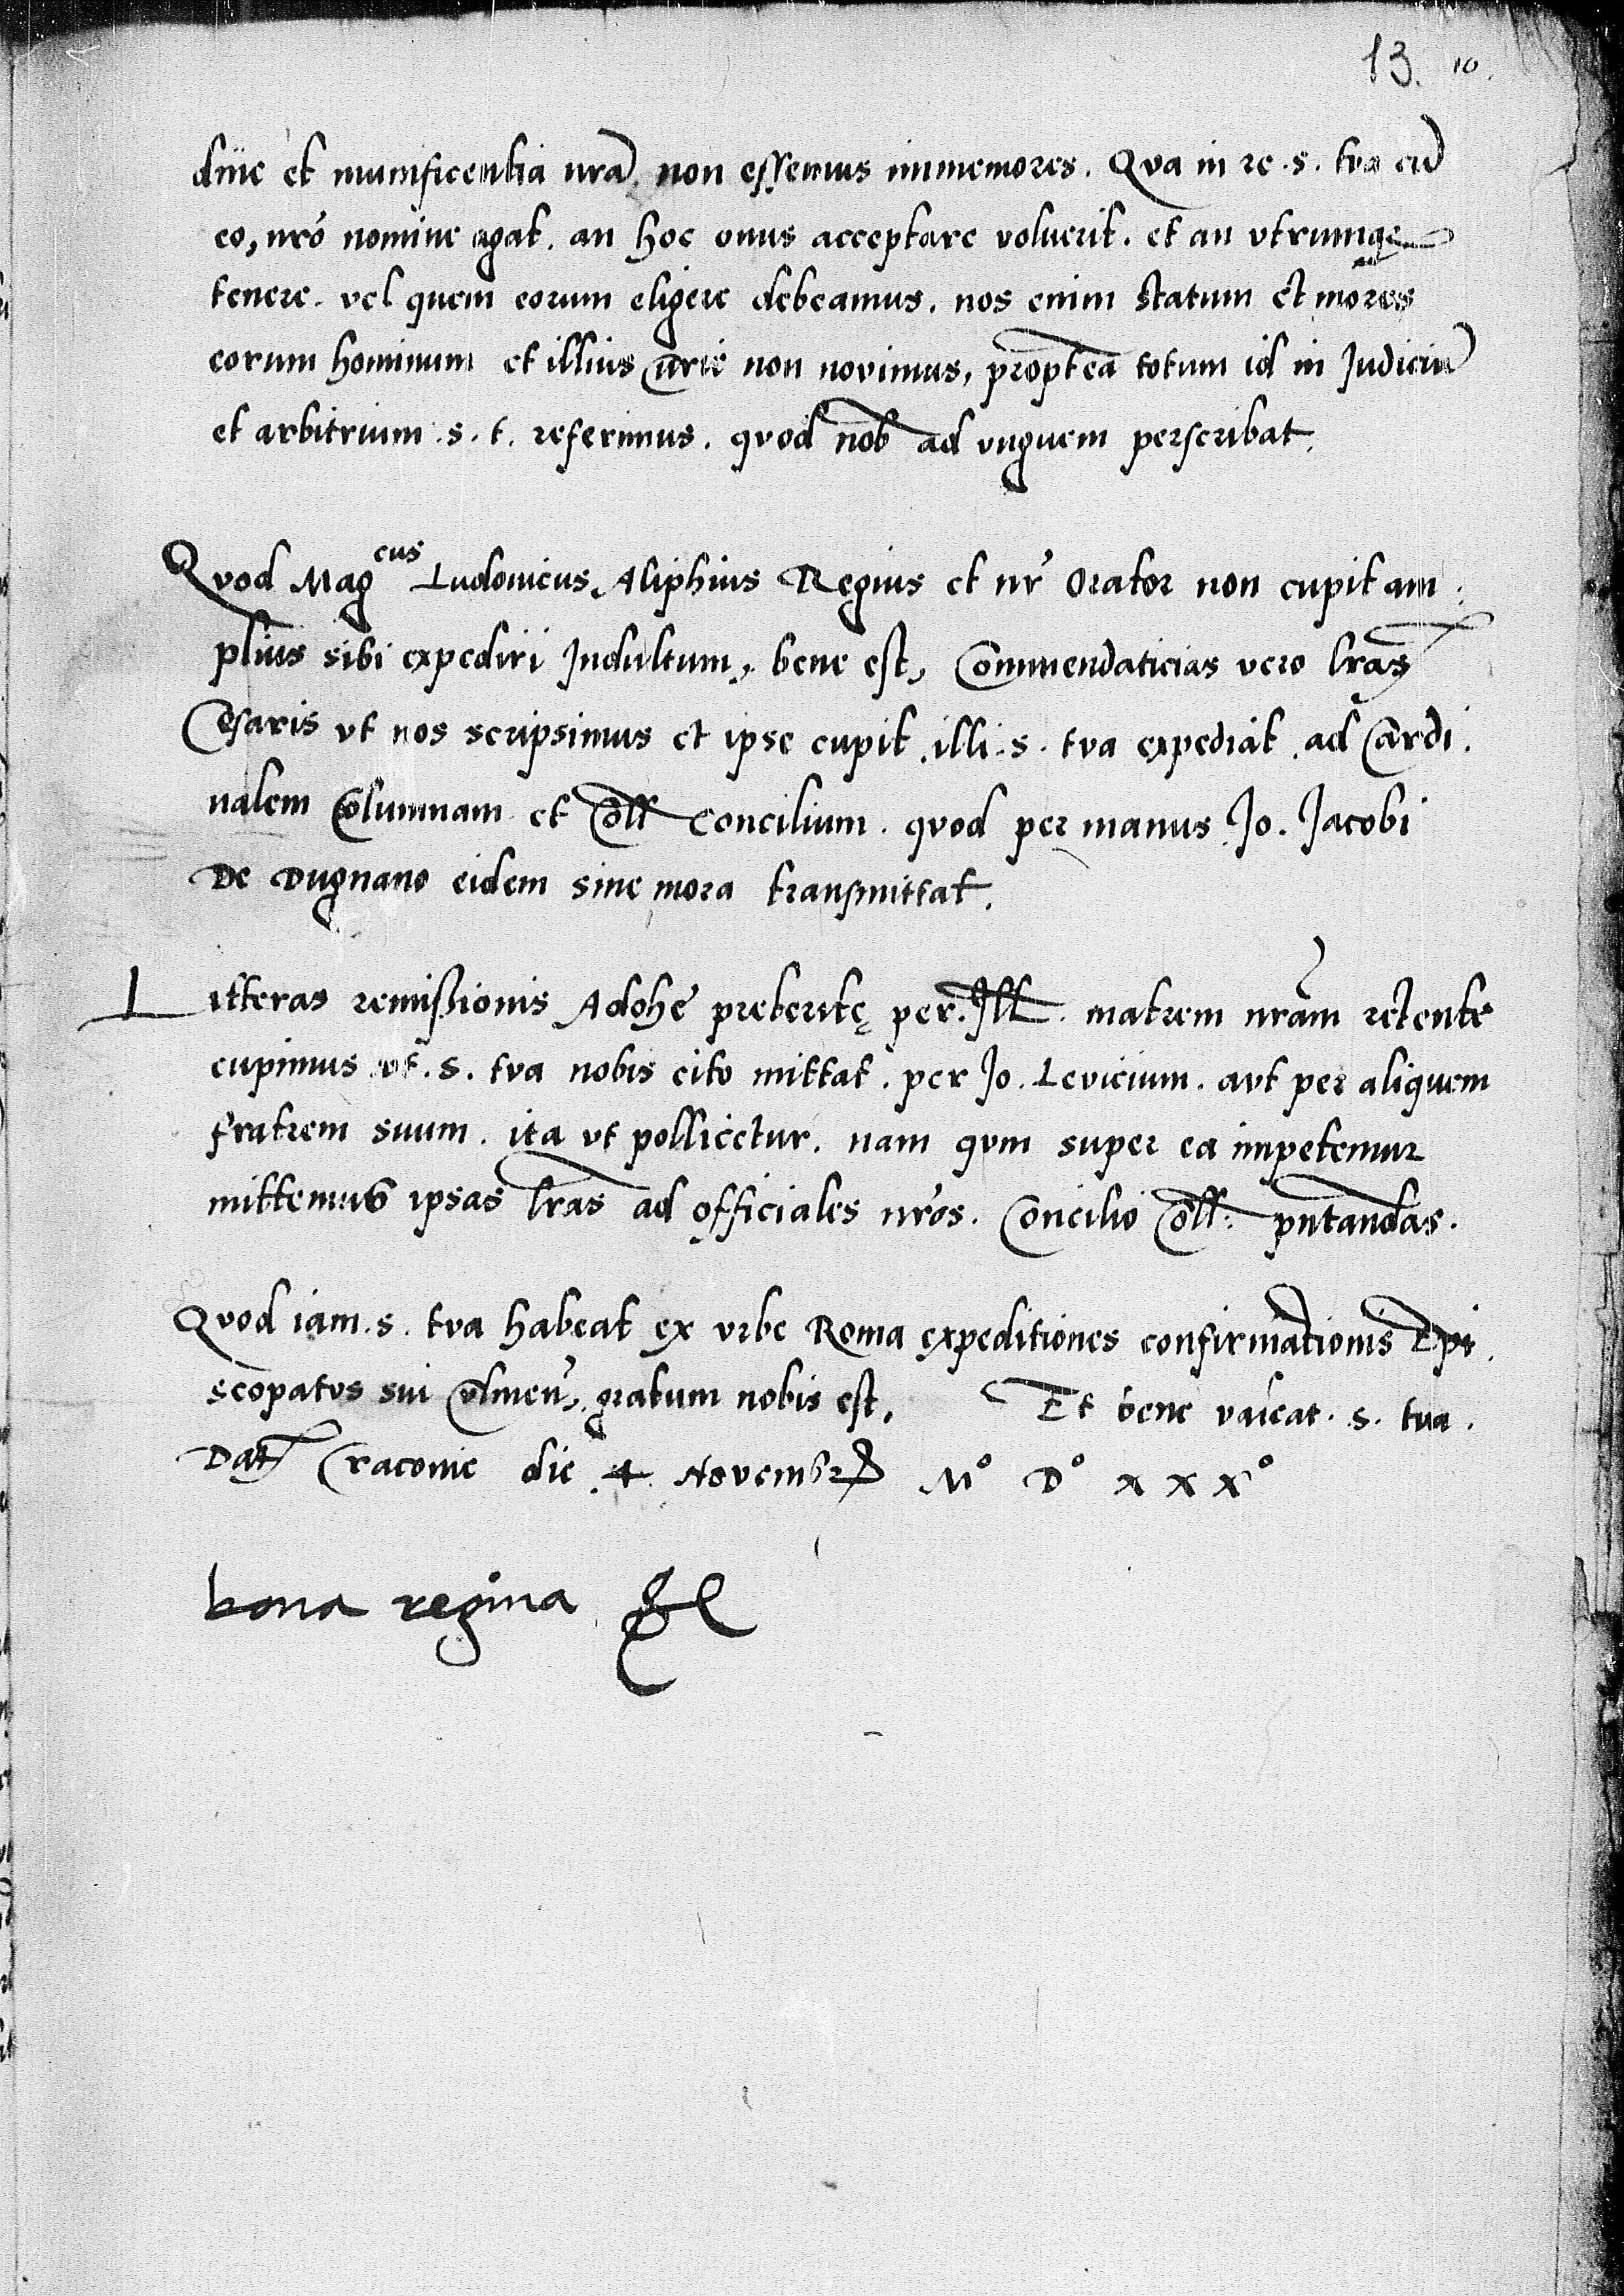 13. 10.
diñe et munificentia nrã. non essemus immemores. Qva in re .s. tva cũ
eo, nrõ nomine agat. an hoc onus acceptare voluerit. et an vtrumqe
tenere. vel quem eorum eligere debeamus. nos enim statum et mores
eorum hominum et illius Curie non novimus, propterea totum id in Judiciũ
et arbitrium .s. t. referimus. qvod nob ad vnguem perscribat.
Qvod Magcus Ludovicus Aliphius Regius et nr̃ Orator non cupit am
plius sibi expediri Indultum, bene est, Commendaticias vero lrãs
Cesaris vt nos scripsimus et ipse cupit, illi .s. tva expediat. ad Cardi.
nalem Columnam et Coll Concilium. qvod per manus Jo. Jacobi
De Dugnano eidem sine mora transmittat.
Litteras remissionis Adohe preteritę per .Ill. matrem nrãm retente
cupimus vt .s. tva nobis cito mittat. per Jo. Levicium. avt per aliqvem
fratrem suum. ita vt pollicetur. nam qvm super ea impetemur
mittemus ipsas lrãs ad officiales nrõs. Concilio Coll: pñtandas.
Qvod iam .s. tva habeat ex vrbe Roma expeditiones confirmationis Epi.
scopatvs sui Culmeñ, gratum nobis est. Et bene valeat .s. tva.
Dat Cracovie die .4. Novembr Mº Dº xxxº
bona regina